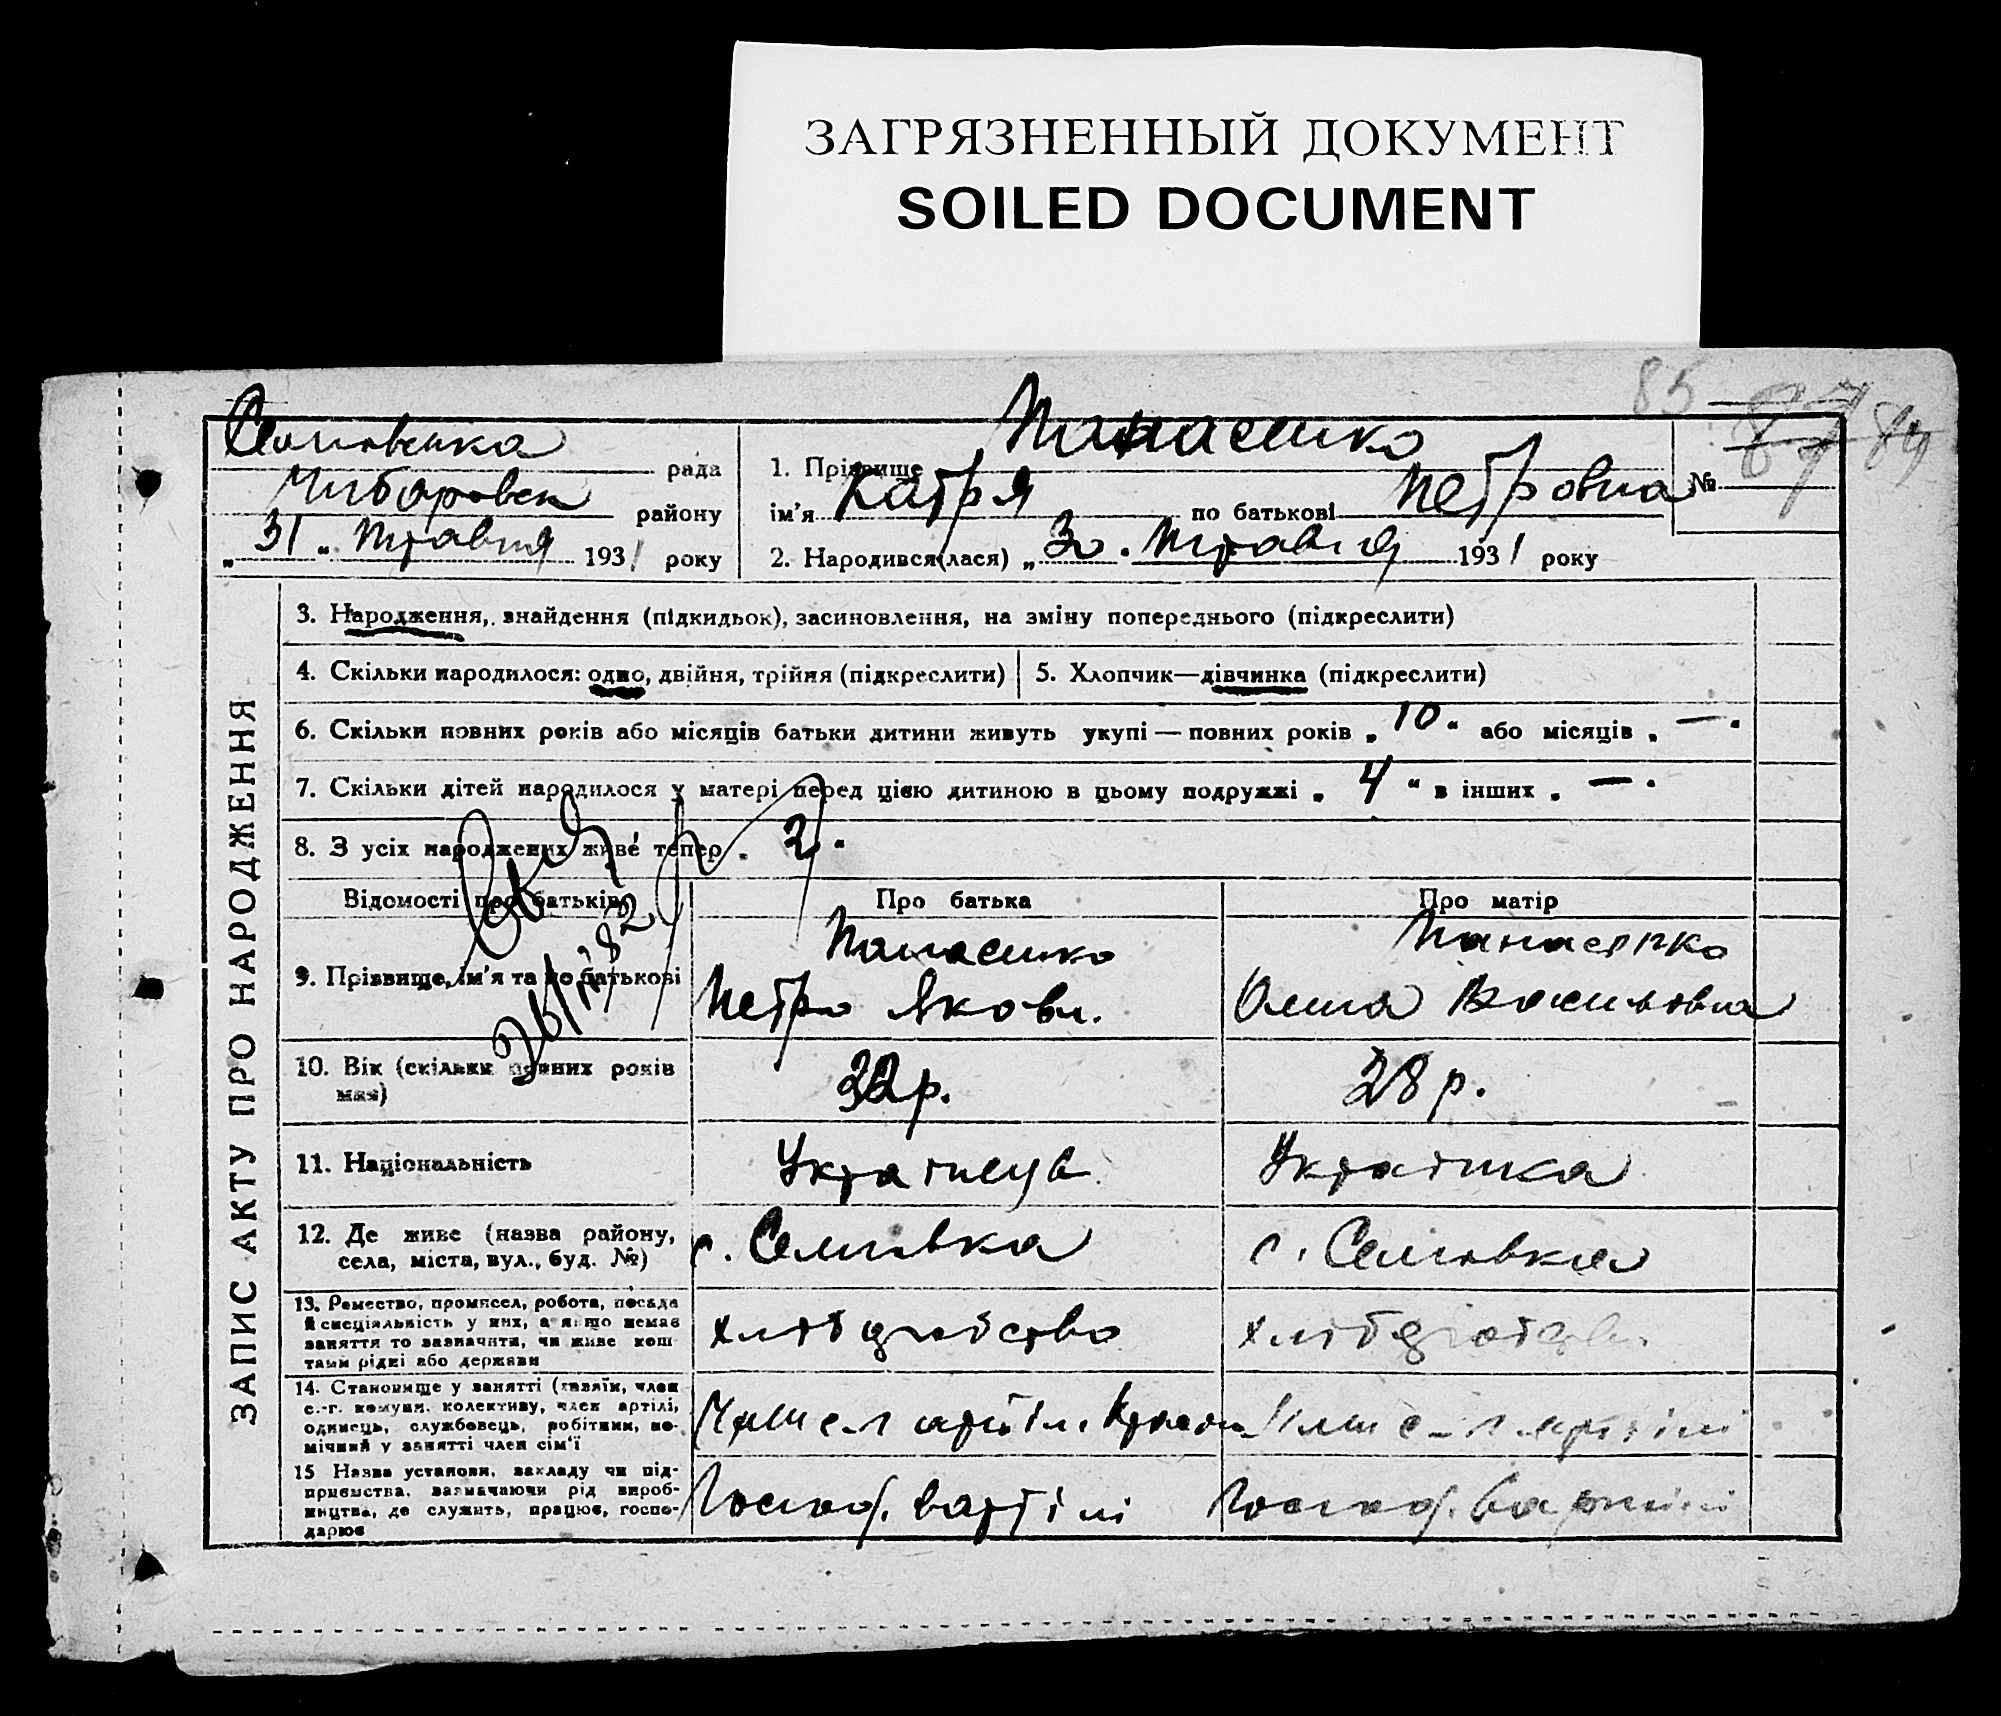 ЗАГРЯЗНЕННЫЙ ДОКУМЕНТ
SOILED DOCUMENT
85 87 89
рада
району
„31“ Травня 1931 року
1. Прізвище Панасенко
ім'я Катря по батькові Петровна
№ 87
2. Народився(лася) „30“ Травня 1931 року
ЗАПИС АКТУ ПРО НАРОДЖЕННЯ
3. Народження, знайдення (підкидьок), засиновлення, на зміну попереднього (підкреслити)
4. Скільки народилося: одно, двійня, трійня (підкреслити)
5. Хлопчик—дівчинка (підкреслити)
6. Скільки повних років або місяців батьки дитини живуть укупі — повних років „10“ або місяців „—“
7. Скільки дітей народилося у матері перед цією дитиною в цьому подружжі „4“ в інших „—“
8. З усіх народжених живе тепер „2“
Відомості про батьків
Про батька
Про матір
9. Прізвище, ім'я та по батькові
Панасенко
Петро Яковл.
Панасенко
Васильовна
10. Вік (скільки повних років має)
32 р.
28 р.
11. Національність
Українець
Українка
12. Де живе (назва району,
села, міста, вул., буд. №)
с. Семновка
с. Семновка
13. Ремество, промисел, робота, посада
й спеціяльність у них, а якщо немає
заняття то зазначити, чи живе кош-
тами рідні або держави
хліборобство
14. Становище у занятті (хазяїн, член
с.-г. комуни, колективу, член артілі,
одинець, службовець, робітник, по-
мічний у занятті член сім'ї
Член с-г артіли
Член с-г артілі
15 Назва установи, закладу чи під-
приємства, зазначаючи рід вироб-
ництва, де служить, працює, госпо-
дарює
Господ. в артілі
Господ. в артілі